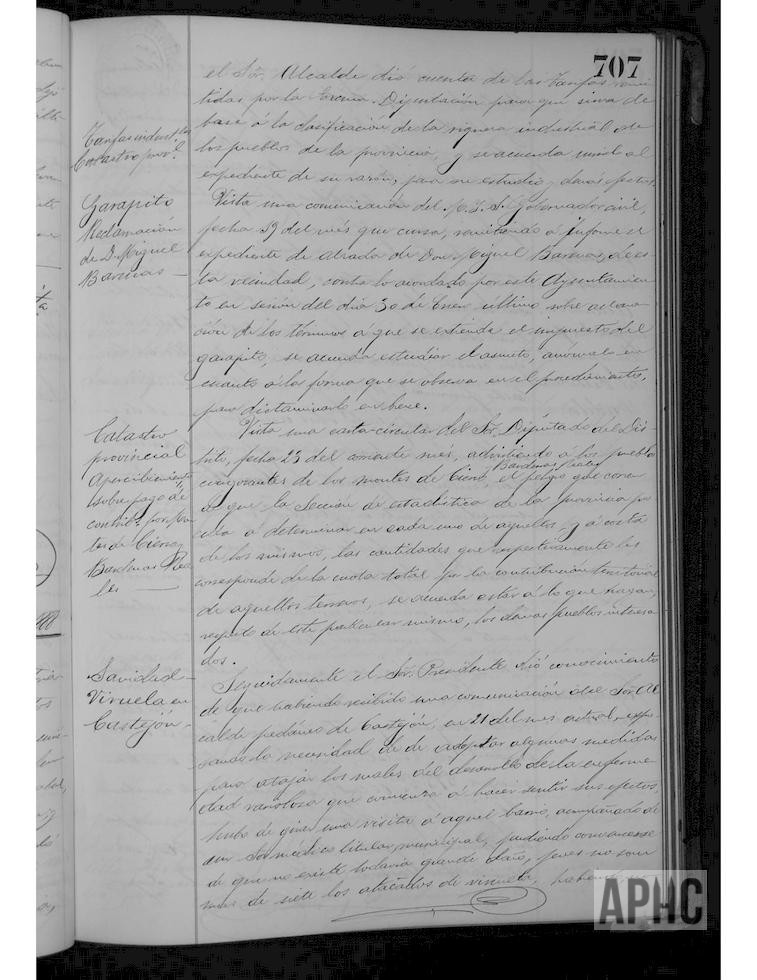 707
el Sor. Alcalde dió cuenta de las Tarifas remi-
tidas por la Excma. Diputación para que sirva de
base á la clasificación de la riqueza industrial de
los pueblos de la provincia, y se acuerda unirlo al
expediente de su razón, para su estudio y demás efectos.
Garapito
Reclamación
de D. Miguel
Barcos
Vista una comunicación del M. I. S. Gobernador civil,
fecha 19 del més que cursa, remitiendo á informe el
expediente de alzada de Don Miguel de es-
ta vecindad, contra lo acordado por este Ayuntamien-
to en sesión del dia 30 de Enero último sobre aclara-
ción de los términos á que se estiende el impuesto del
garapito, se acuerda estudiar el asunto, anómalo en
cuanto á la forma que se observa en el procedimiento,
para dictaminarlo en breve.
Catastro
provincial
Apercibimiento
sobre pago de
contribn. por Mon-
tes de Cierzo y
Bardenas Rea-
les
Vista una carta-circular del Sor. Diputado del Dis-
trito, fecha 23 del corriente mes, advirtiendo á los pueblos
congozantes de los montes de Cierzo y Bardenas Reales, el peligro que corren
de que la Sección de estadística de la provincia pro-
ceda á determinar en cada uno de aquellos, y á costa
de los mismos, las cantidades que respectivamente les
corresponde de la cuota total por la contribución territorial
de aquellos terrenos, se acuerda estár á lo que hagan,
respecto de este particular mismo, los demas pueblos interesa-
dos.
Sanidad
Viruela en
Castejón
Seguidamente el Sor. Presidente dió conocimiento
de que habiendo recibido una comunicación del Sor. Al-
calde pedáneo de Castejón, en 21 del mes actual, expre-
sando la necesidad de adoptar algunas medidas
para atajar los males del desarrollo de la enferme-
dad variolosa que comienza á hacer sentir sus efectos,
hubo de girar una visita á aquel barrio, acompañado de
un Sor médico titular, municipal, pudiendo convencerse
de que no existe todavía grande daño, pues no son
mas de siete los atacados de viruela,
APHC